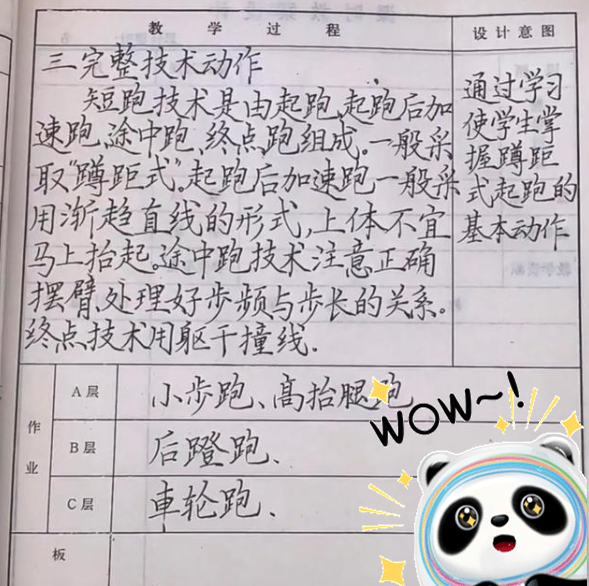 教 学 过 程
设计意图
三.完整技术动作
短跑技术是由起跑、起跑后加
速跑、途中跑、终点跑组成。一般采
取“蹲距式”。起跑后加速跑一般采
用渐趋直线的形式,上体不宜
马上抬起。途中跑技术注意正确
摆臂,处理好步频与步长的关系。
终点技术用躯干撞线.
通过学习
使学生掌
握蹲距
式起跑的
基本动作
作业
A层
小步跑、高抬腿跑
B层
后蹬跑、
C层
車轮跑、
板
WOW~!